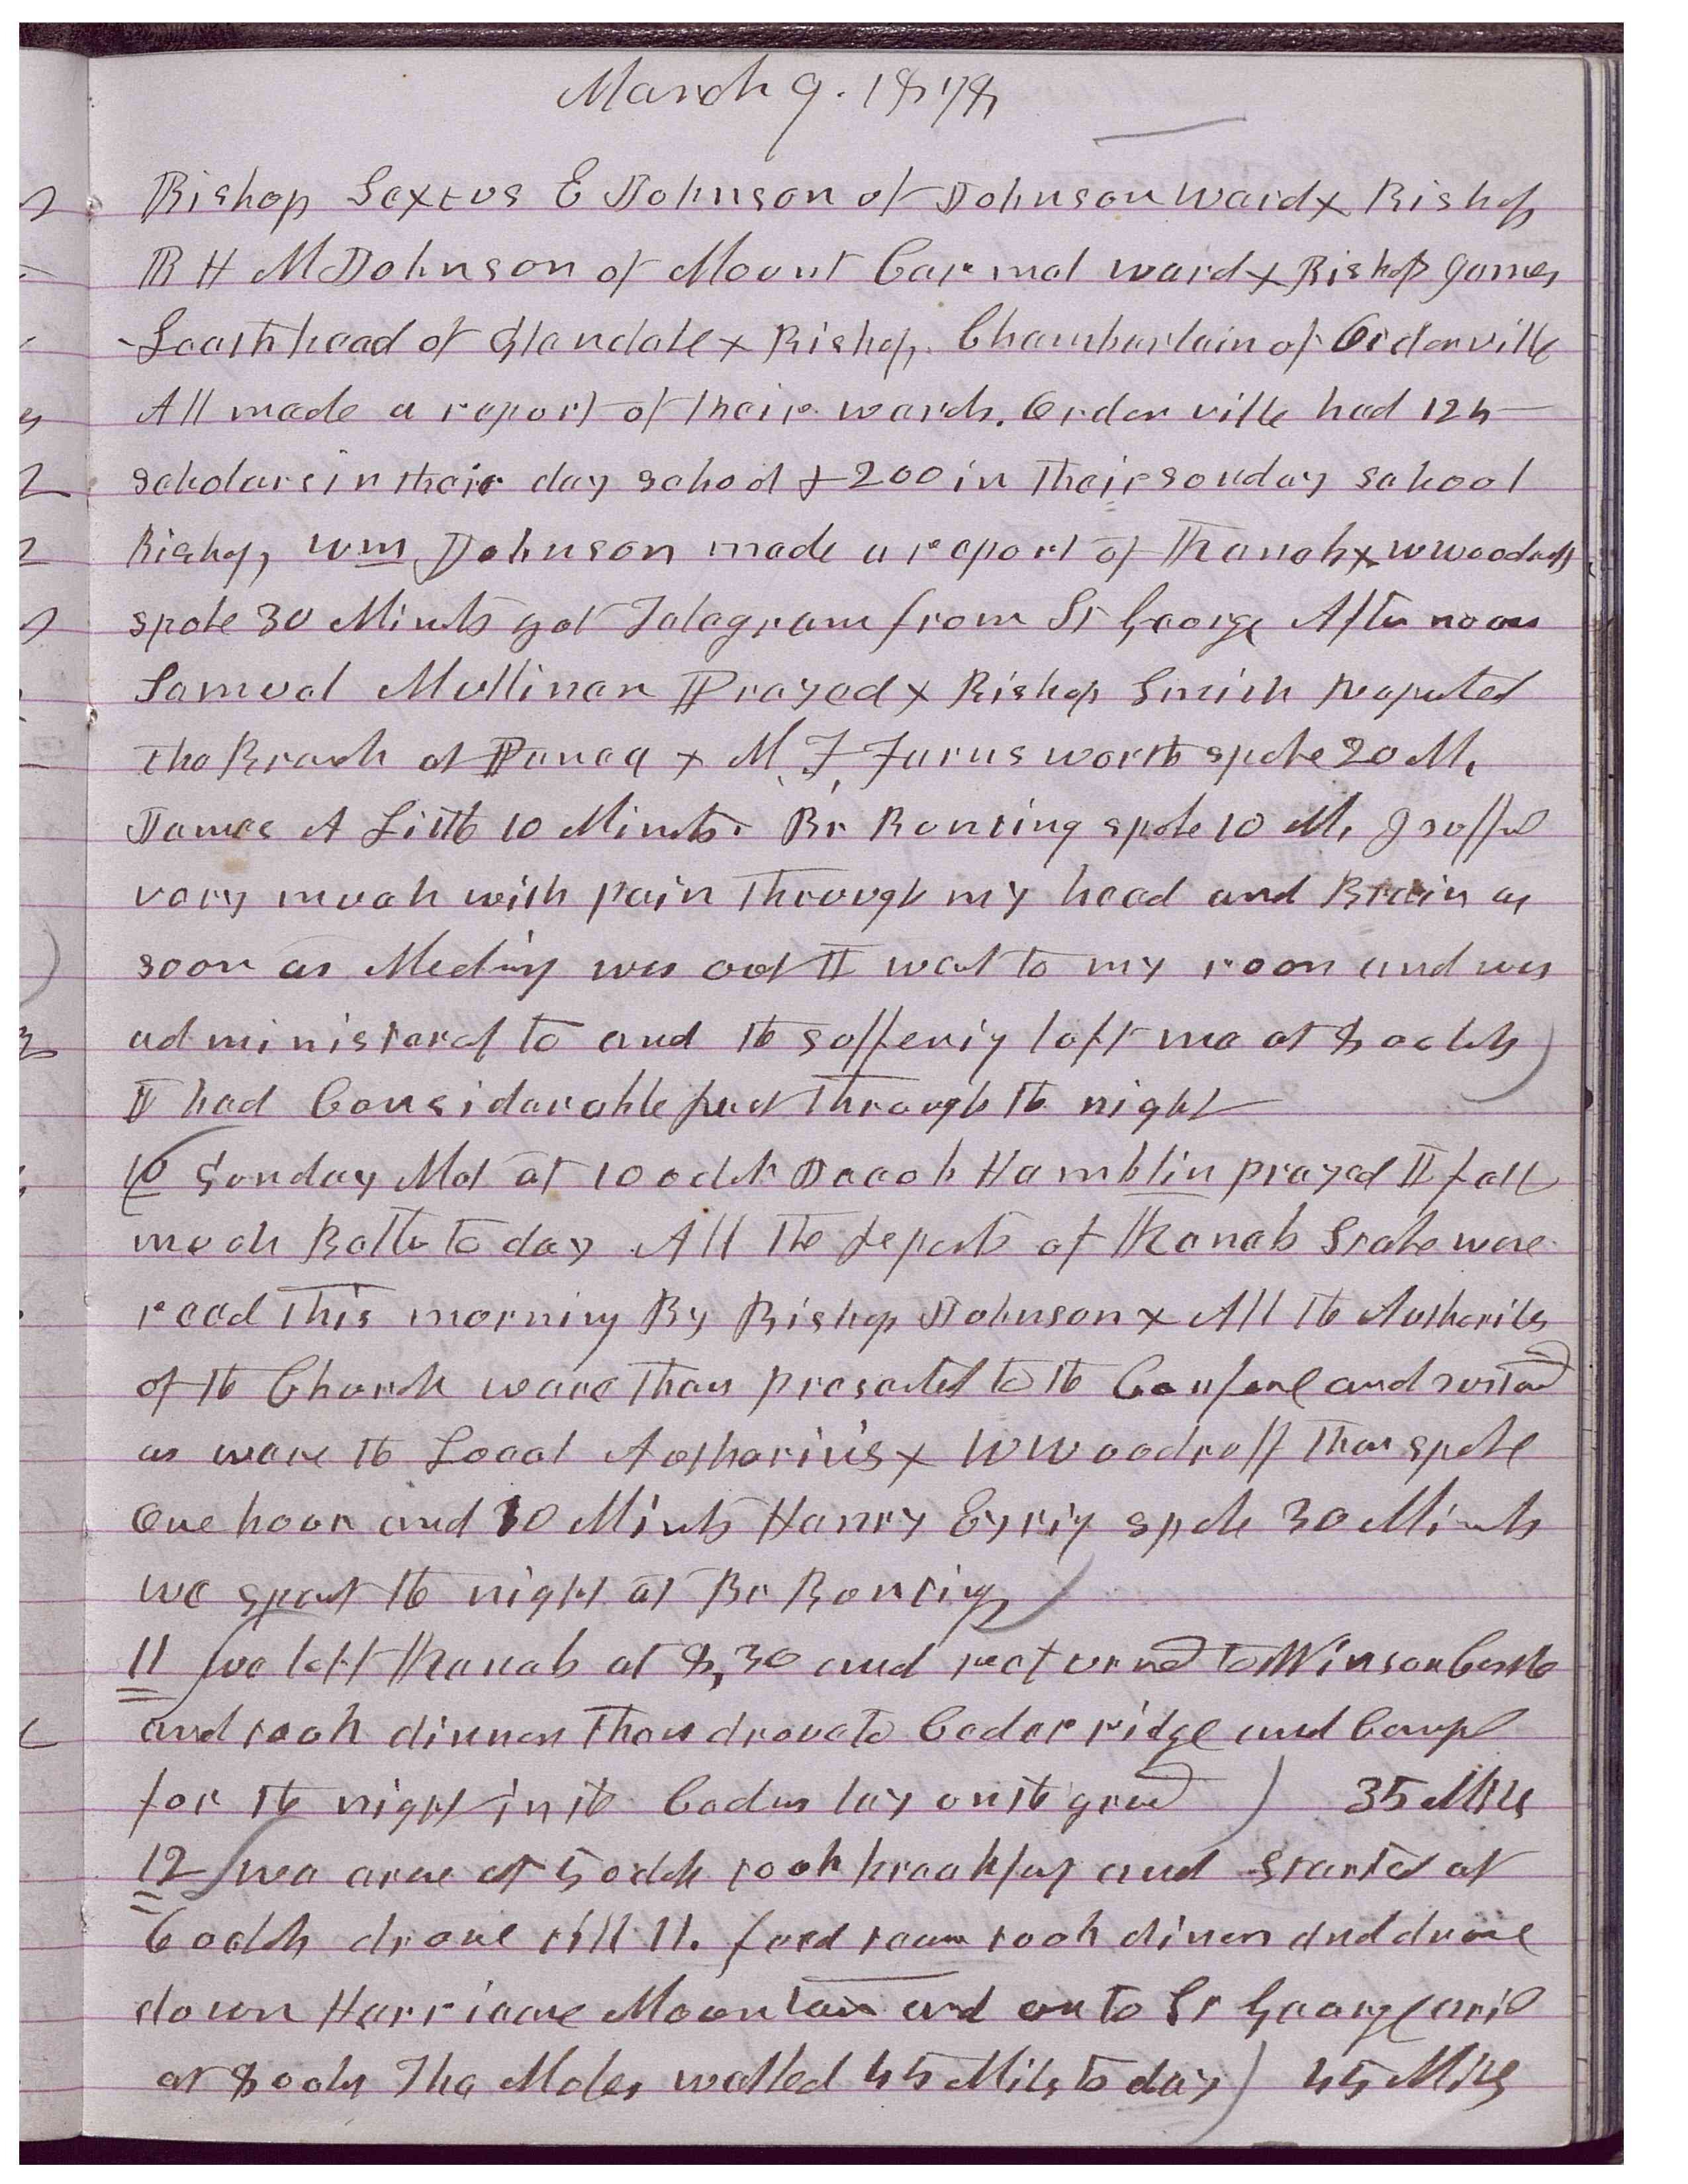 March 9. 1878
Bishop Sextus E Johnson of Johnson ward & Bishop
B H M Johnson of Mount Carmal ward & Bishop James
Leathhead of Glendale & Bishop Chamberlain of Orderville
All made a report of their wards. Order ville had 125
scholars in their day school & 200 in their sunday school
Bishop Wm Johnson made a report of Kanab & W Woodruff
spoke 30 Minuts got Telegram from St George Afternoon
Samuel Mullinar Prayed & Bishop Smith reported
the Branch at Panea & M. F. Farnsworth spoke 20 M,
James A Little 10 Minuts. Br Bunting spoke 10 M, I sufferd
very much with pain through my head and Brain as
soon as Meeting was out I went to my room and was
administered to and the suffering left me at 8 oclok
I had Considerable fever through the night
10 Sunday Met at 10 oclok Jacob Hamblin prayed I felt
much Better to day All the reports of Kanab Stake were
read this morning By Bishop Johnson & All the Authorites
of the Church ware then presented to the Conference and sustaind
as ware the Local Autharities & W Woodruff then spoke
One hour and 10 Minuts Henry Eyring spoke 30 Minuts
we spent the night at Br Bunting
11 we left Kanab at 8,30 and returned to Winsor Castle
and took dinner then drove to Ceder ridge and Campd
for the night in the Ceders lay on the ground 35 Miles
12 we arose at 5 oclok took breakfast and started at
6 oclok drove till 11. fed team took dinner and drove
down Harricane Mountain and on to St George arivd
at 8 oclok The Mules walked 45 Miles to day 45 Miles